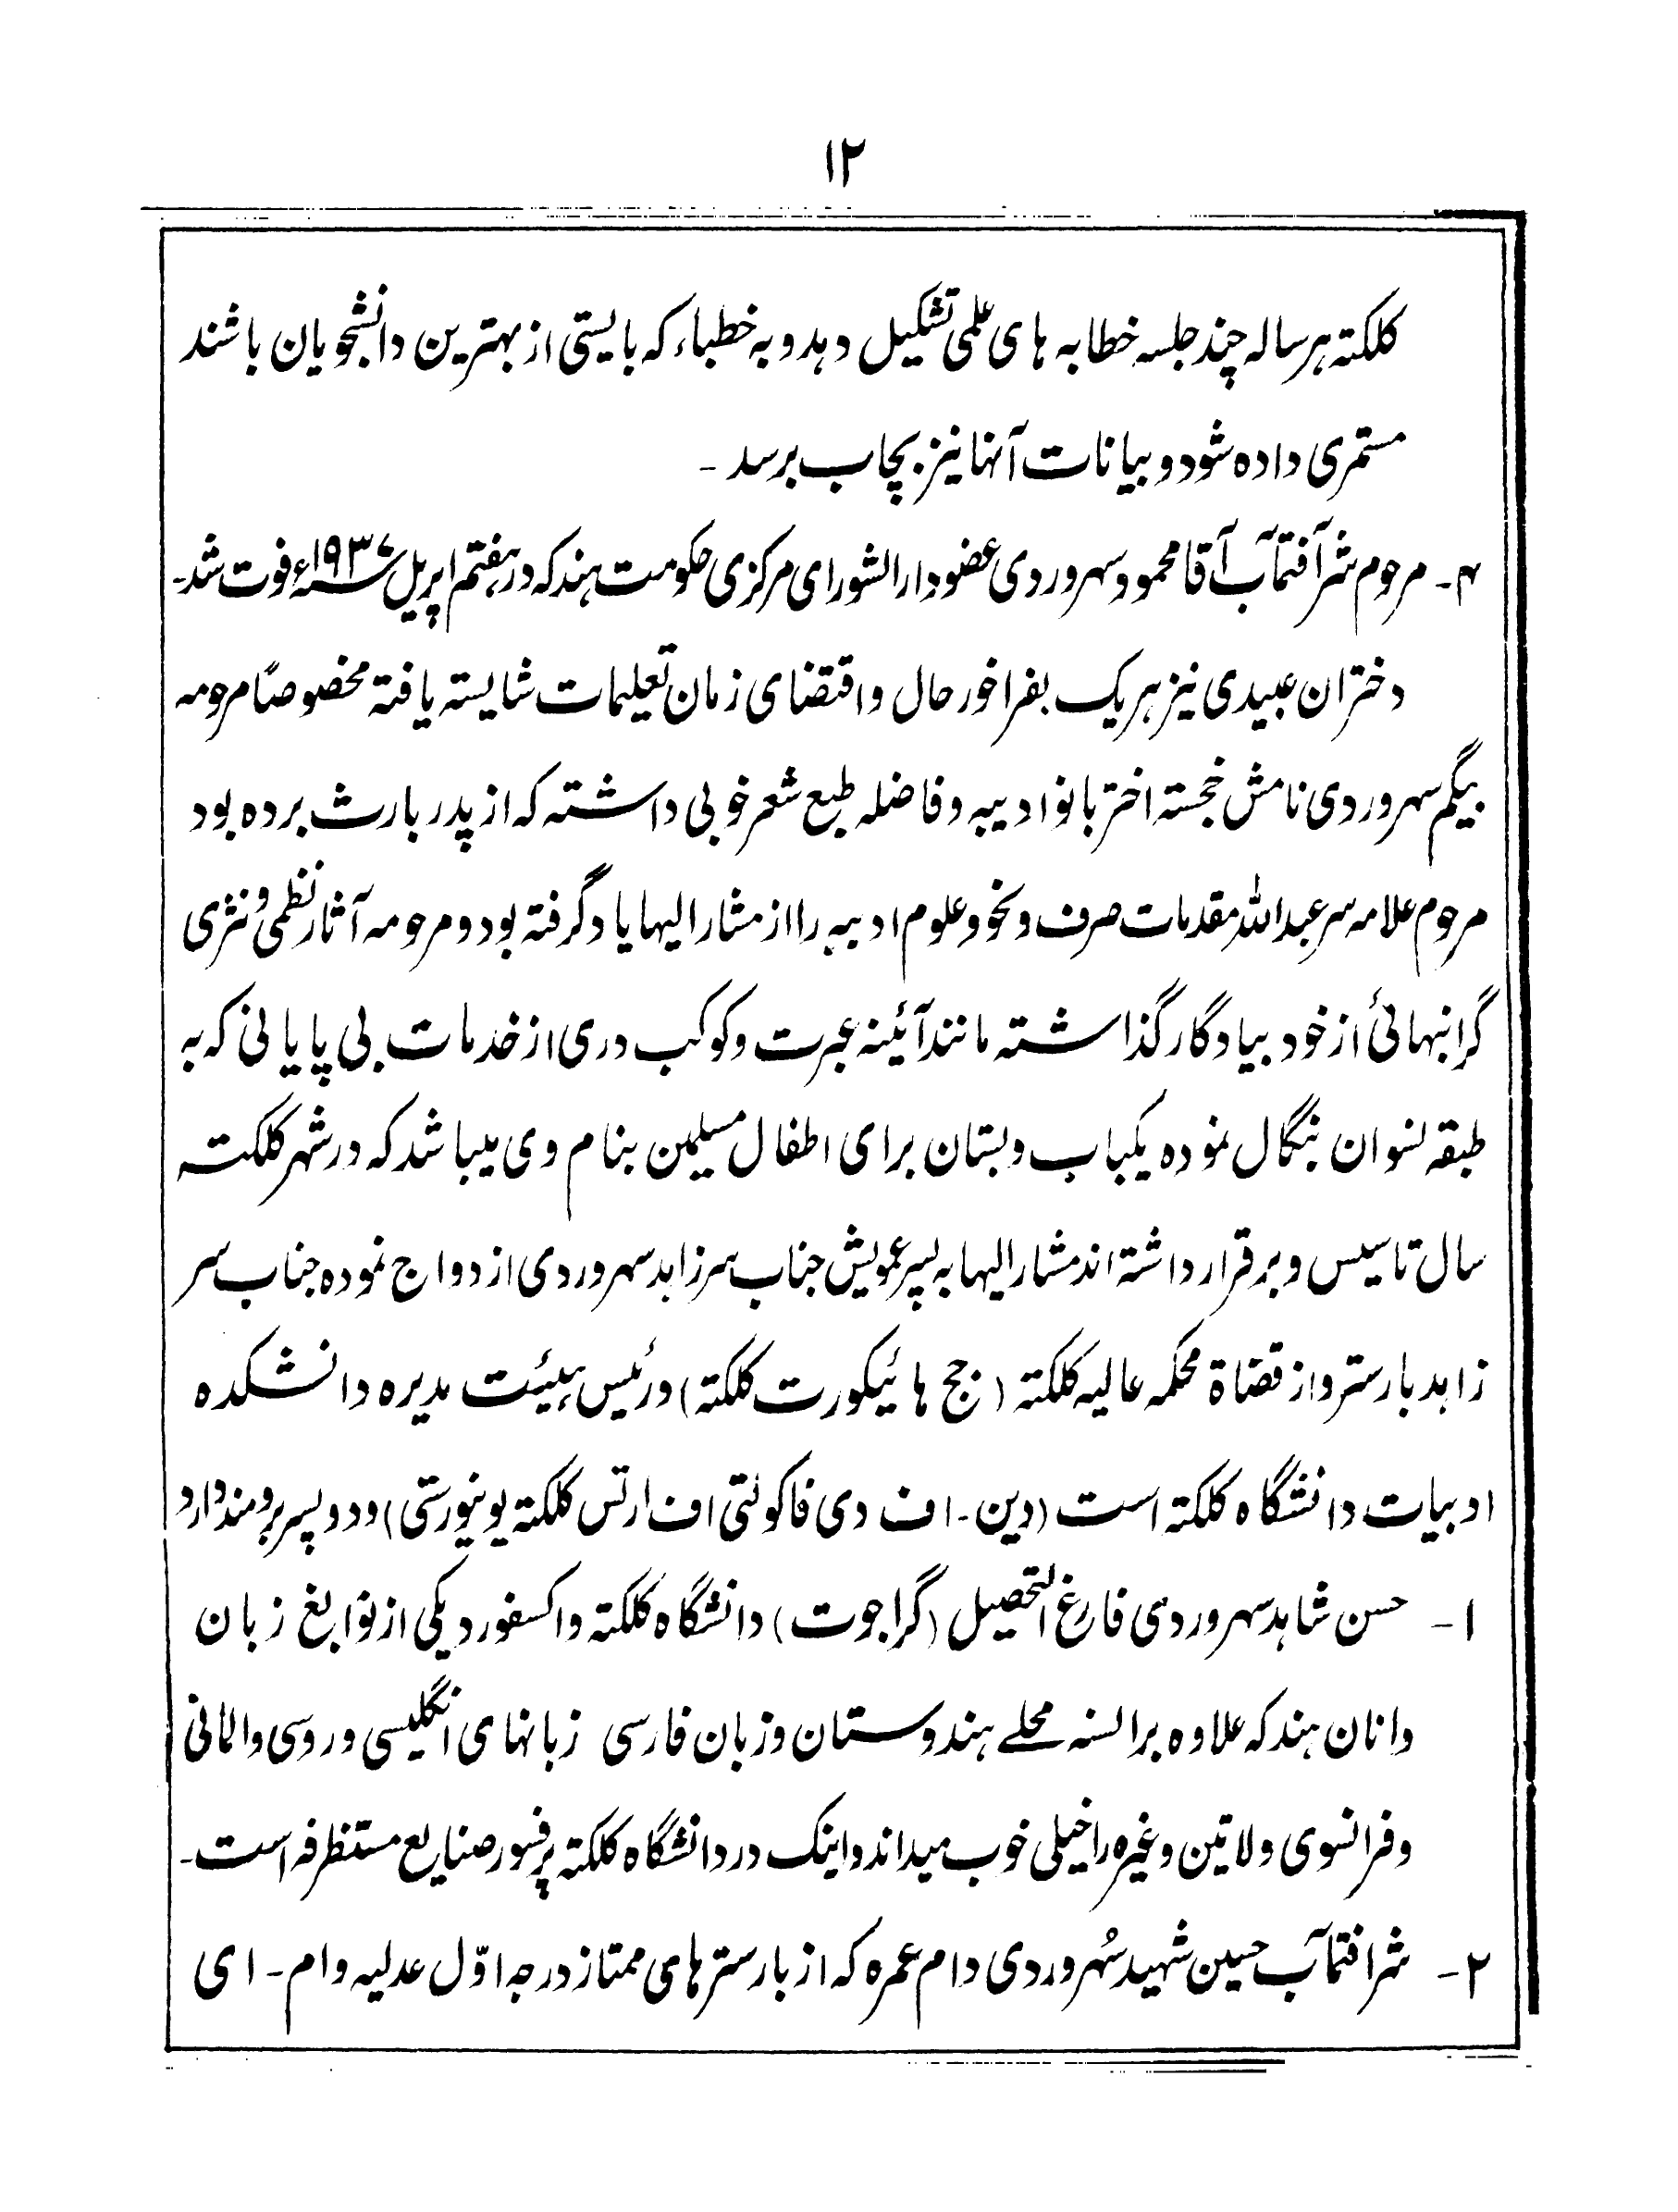 ۱۲
کلکته هر ساله چند جلسه خطابه های علمی تشکیل دهد و به خطباء که بایستی از بهترین دانشجویان باشند
مستمری داده شود و بیانات آنها نیز بچاپ برسد -
۴- مرحوم شرآفتمآب آقا محمود سهروردی عضو دارالشورای مرکزی حکومت هند که در هفتم اپریل سنه ۱۹۳۷ء فوت شد-
دختران عبیدی نیز هر یک بفراخور حال و اقتضای زمان تعلیمات شایسته یافته مخصوصاً مرحومه
بیگم سهروردی نامش خجسته اختر بانو ادیبه و فاضله طبع شعر خوبی داشته که از پدر بارث برده بود
مرحوم علامه سر عبدالله مقدمات صرف و نحو و علوم ادبیه را از مشار الیها یاد گرفته بود و مرحومه آثار نظمی و نثری
گرانبهائی از خود بیادگار گذاشته مانند آئینه عبرت و کوکب دری از خدمات بی پایانی که به
طبقه نسوان بنگال نموده یکباب دبستان برای اطفال مسلمین بنام وی میباشد که در شهر کلکته
سال تاسیس و برقرار داشته اند مشار الیها به پسر عمویش جناب سر زاهد سهروردی ازدواج نموده جناب سر
زاهد بارستر و از قضاة محکمه عالیه کلکته (جج هائیکورت کلکته) و رئیس هیئت مدیره دانشکده
ادبیات دانشگاه کلکته است (دین - اف دی فاکولتی اف ارتس کلکته یونیورستی) و دو پسر برومند دارد
۱- حسن شاهد سهروردی فارغ التحصیل (گراجوت) دانشگاه کلکته و اکسفورد یکی از نوابغ زبان
دانان هند که علاوه بر السنه محلے هندوستان و زبان فارسی زبانهای انگلیسی و روسی و المانی
و فرانسوی و لاتین و غیره را خیلی خوب میداند و اینک در دانشگاه کلکته پرفسور صنایع مستظرفه است-
۲- شرافتمآب حسین شهید سُهروردی دام عمره که از بارسترهای ممتاز درجه اوّل عدلیه و ام - ای